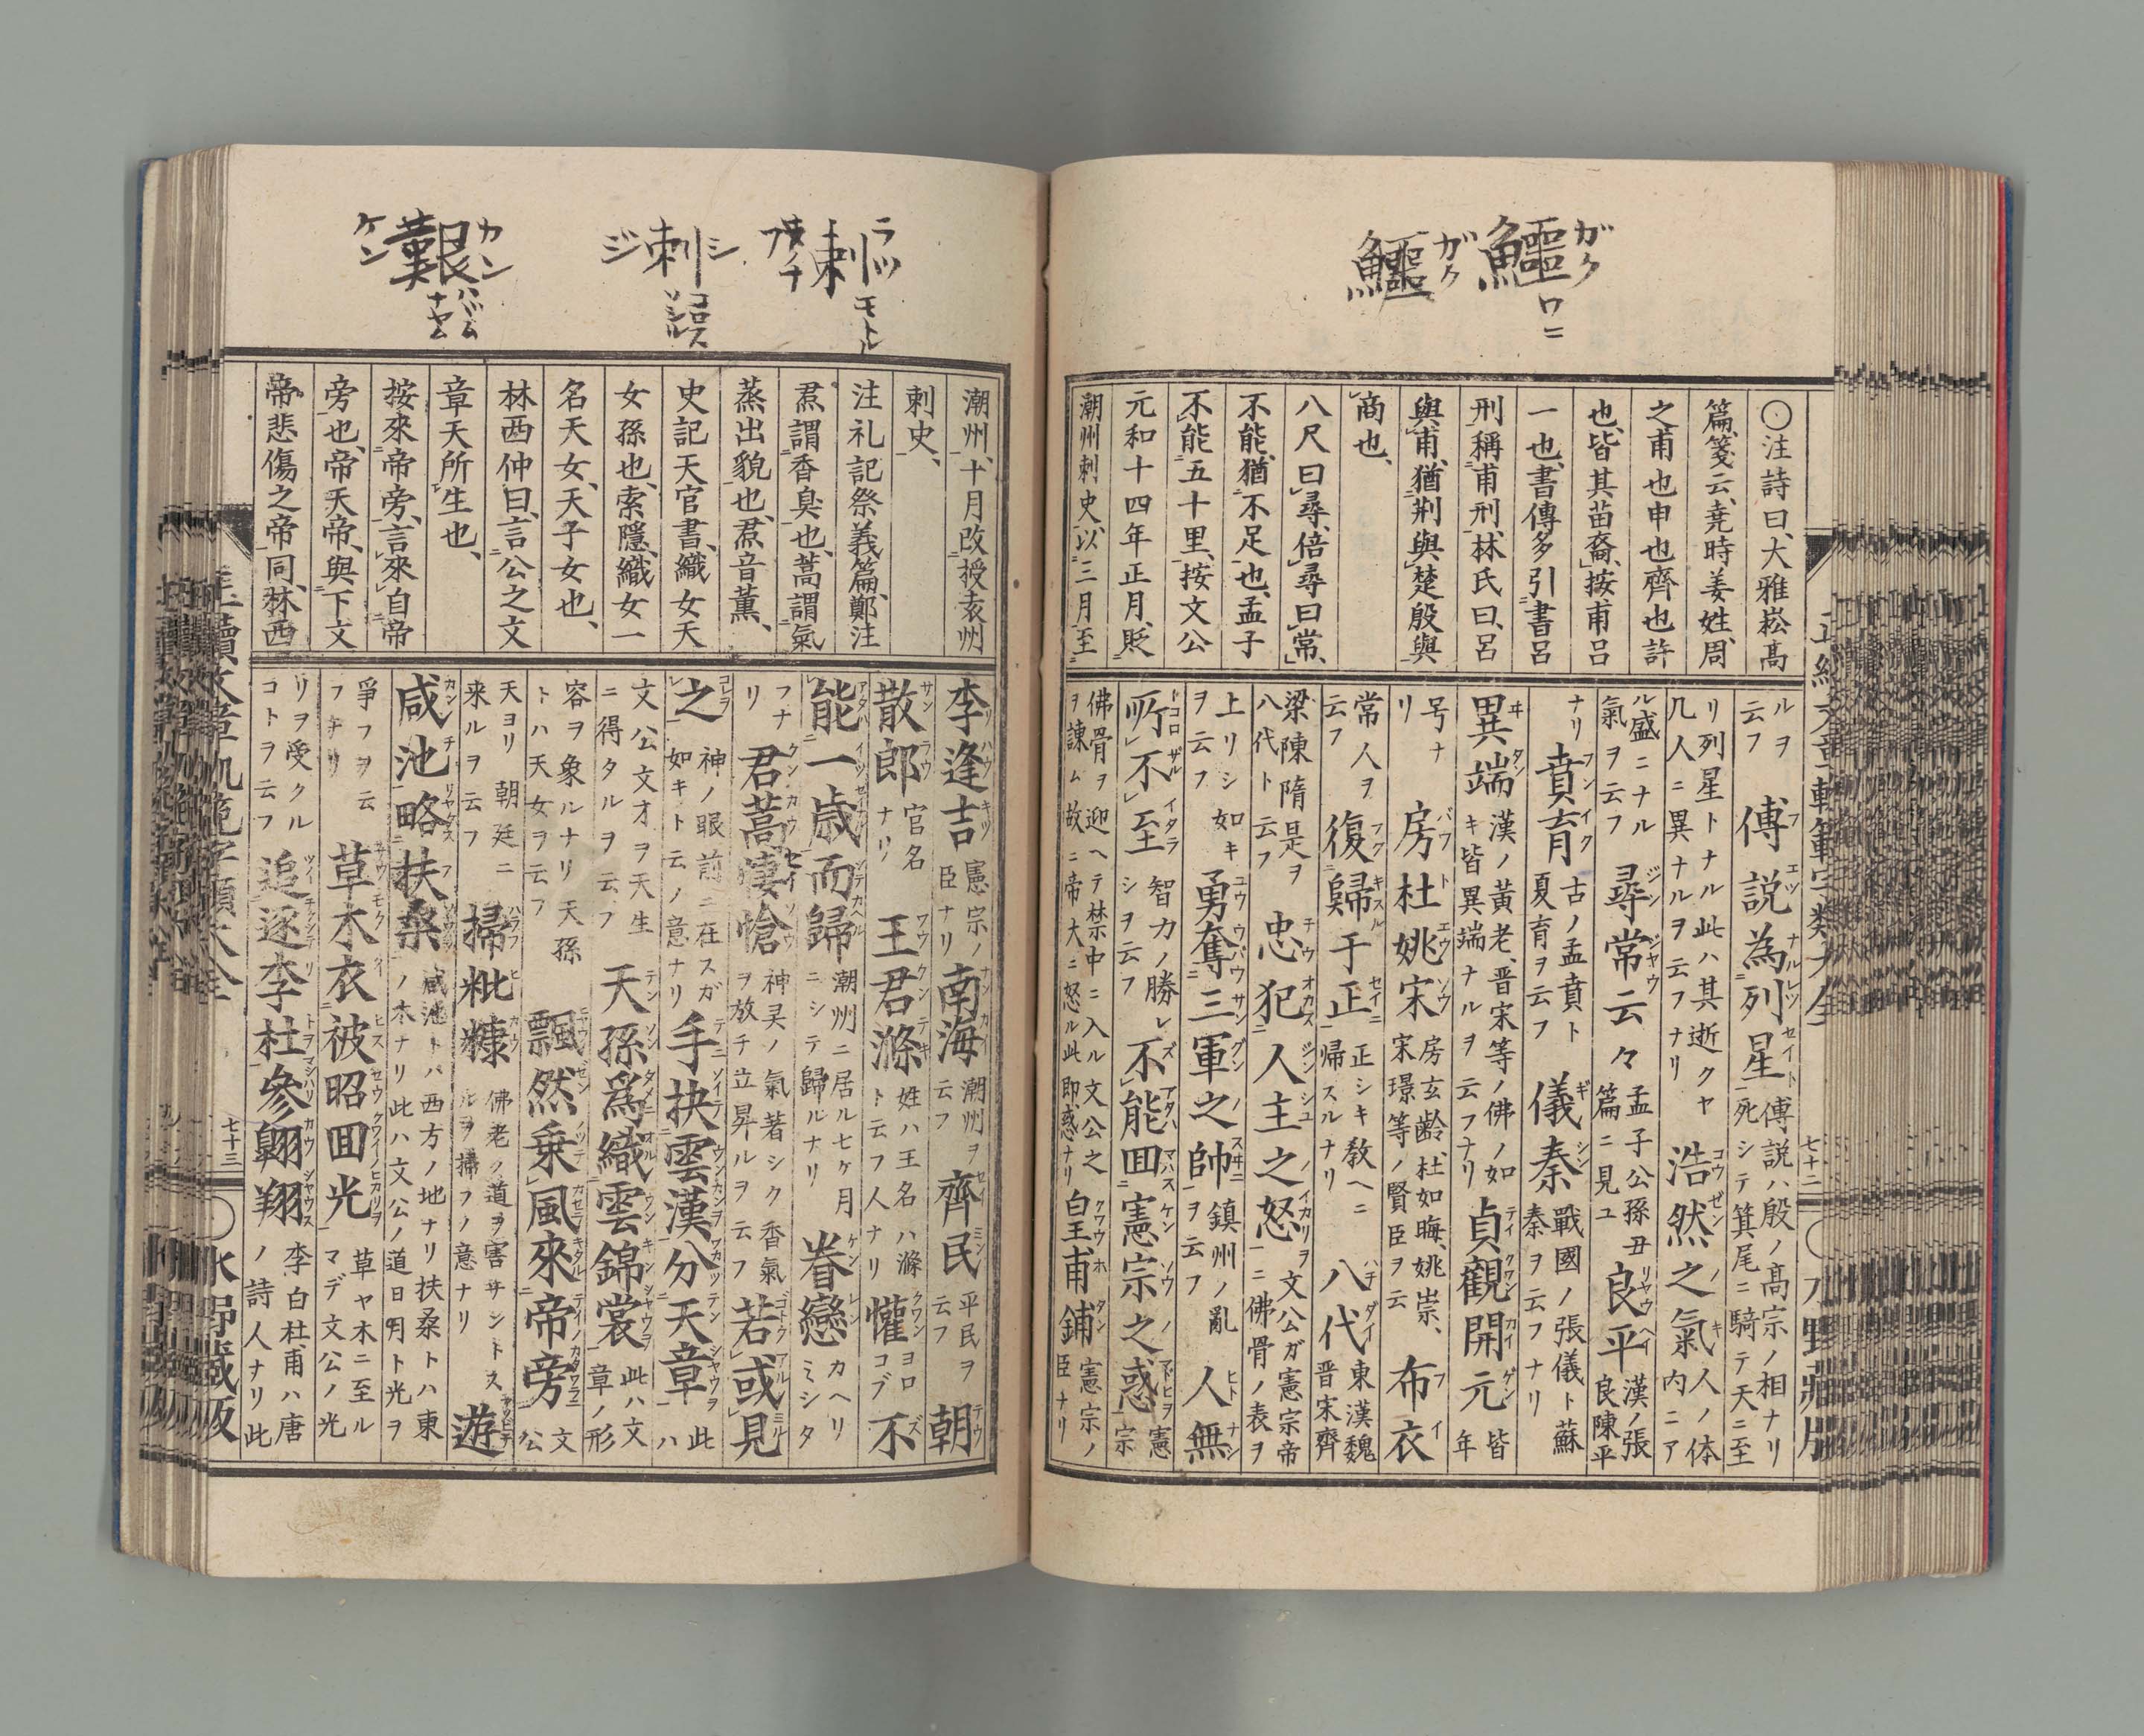 ガク
鱷
ワニ
ガク
鱷
〇注詩曰、大雅崧高
篇、箋云、堯時姜姓、周
之甫也申也齊也許
也、皆其苗裔、按甫呂
一也、書傳多引書呂
刑稱甫刑、林氏曰、呂
與甫、猶荊與楚殷與
商也、
八尺曰尋、倍尋曰常、
不能、猶不足也、孟子
不能五十里、按文公
元和十四年正月、貶
潮州刺史、以三月至
ルヲ云フ 傅説為列星 傅説ハ殷ノ高宗ノ相ナリ死シテ箕尾ニ騎テ天ニ至
リ列星トナル此ハ其逝クヤ凡人ニ異ナルヲ云フナリ 浩然之氣 人ノ体内ニア
ル盛ニナル氣ヲ云フ 尋常云々 孟子公孫丑篇ニ見ユ 良平 漢ノ張良陳平
ナリ 賁育 古ノ孟賁ト夏育ヲ云フ 儀秦 戰國ノ張儀ト蘇秦ヲ云フナリ
異端 漢ノ黃老、晋宋等ノ佛ノ如キ皆異端ナルヲ云フナリ 貞觀開元 皆年
号ナリ 房杜姚宋 房玄齡、杜如晦、姚崇、宋璟等ノ賢臣ヲ云 布衣
常人ヲ云フ 復歸于正 正シキ教ヘニ帰スルナリ 八代 東漢魏晋宋齊
梁陳隋是ヲ八代ト云フ 忠犯人主之怒 文公ガ憲宗帝ニ佛骨ノ表ヲ
上リシ如キヲ云フ 勇奪三軍之帥 鎮州ノ亂ヲ云フ 人無
所不至 智力ノ勝レシヲ云フ 不能回憲宗之惑 憲宗
佛骨ヲ迎ヘテ禁中ニ入ル文公之ヲ諫ム故ニ帝大ニ怒ル此即惑ナリ 皇甫鎛 憲宗ノ臣ナリ
七十二
ラツ
剌
モトル
シ
刺
ジ
コロス
ソシル
カン
艱
ケン
ナヤム
潮州、十月改授袁州
刺史、
注礼記祭義篇、鄭注
焄謂香臭也、蒿謂氣
蒸出貌也、焄音薫、
史記天官書、織女天
女孫也、索隱、織女一
名天女、天子女也、
林西仲曰、言公之文
章天所生也、
按來帝旁、言來自帝
旁也、帝天帝、與下文
帝悲傷之帝同、林西
李逢吉 憲宗ノ臣ナリ 南海 潮州ヲ云フ 齊民 平民ヲ云フ 朝
散郎 官名ナリ 王君滌 姓ハ王名ハ滌ト云フ人ナリ 懽 ヨロコブ 不
能一歲而歸 潮州ニ居ル七ケ月ニシテ歸ルナリ 眷戀 カヘリミシタ
フナリ 君蒿悽愴 神灵ノ氣著シク香氣ヲ放チ立昇ルヲ云フ 若或見
之 神ノ眼前ニ在スガ如キト云ノ意ナリ 手抉雲漢分天章 此ハ
文公文才ヲ天生ニ得タルヲ云フ 天孫為織雲錦裳 此ハ文章ノ形
容ヲ象ルナリ天孫トハ天女ヲ云フ 飄然乗風來帝旁 文公
天ヨリ朝廷ニ来ルヲ云フ 掃粃糠 佛老ノ道ヲ害サントスルヲ掃フノ意ナリ 遊
咸池略扶桑 咸池トハ西方ノ地ナリ扶桑トハ東ノ木ナリ此ハ文公ノ道日月ト光ヲ
爭フヲ云フナリ 草木衣被昭回光 草ヤ木ニ至ルマデ文公ノ光
リヲ受クルコトヲ云フ 追逐李杜參翺翔 李白杜甫ハ唐ノ詩人ナリ此
七十三